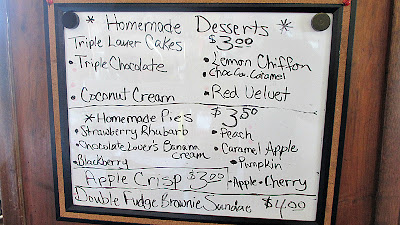 * Homemade Desserts *
Triple Layer Cakes $3.00
• Triple Chocolate
• Lemon Chiffon
• Choc Coc. Caramel
• Coconut Cream
• Red Velvet
* Homemade Pies $3.50
• Strawberry Rhubarb
• Peach
• Chocolate Lover's Banana Cream
• Caramel Apple
• Blackberry
• Pumpkin
• Apple • Cherry
Apple Crisp $3.00
Double Fudge Brownie Sundae $4.00